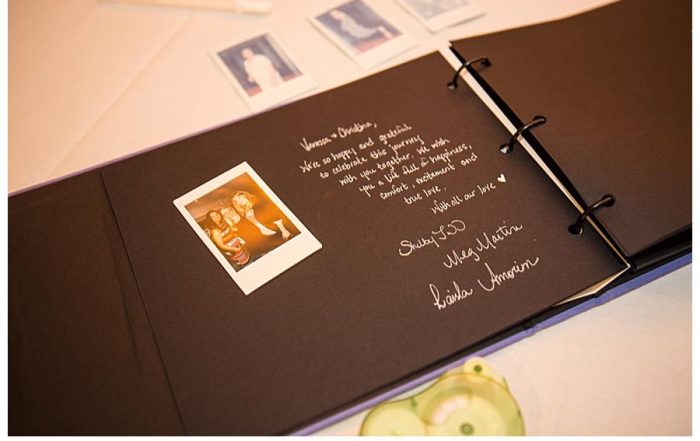 Vanessa + Christina,
We're so happy and grateful
to celebrate this journey
with you together. We wish
you a life full of happiness,
comfort, excitement and
true love.
With all our love ♥
Shelby
Meg Martin
Laisla Amorim